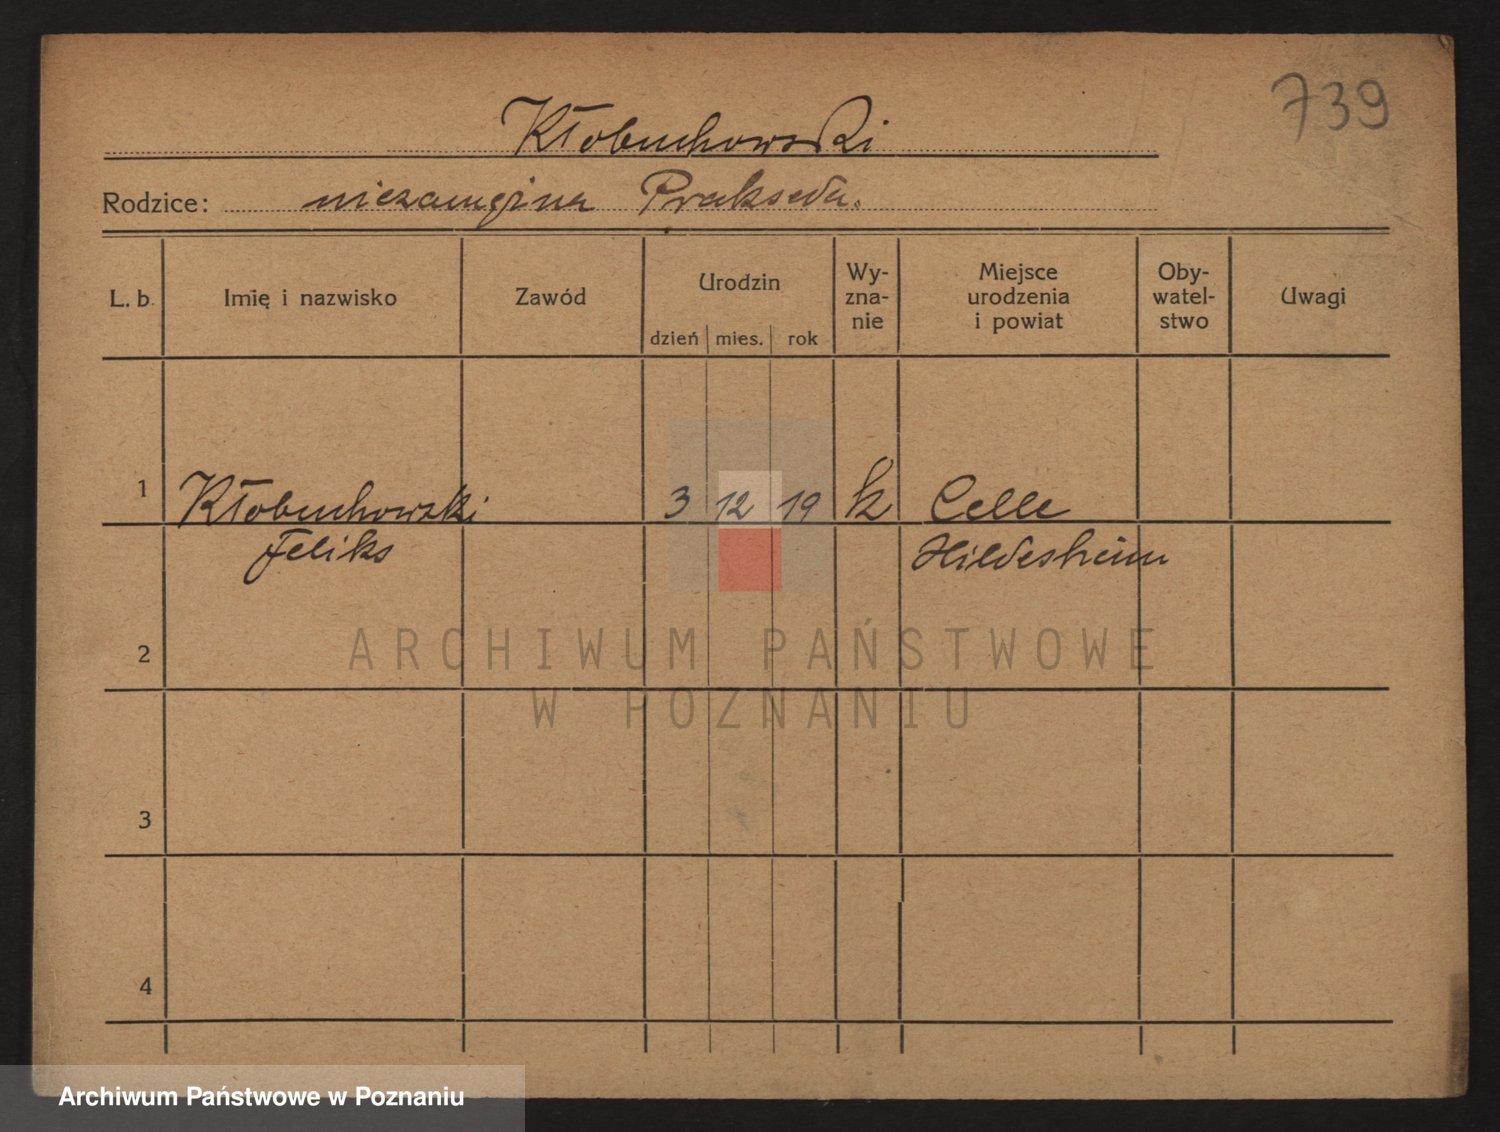 739
Kłobuchowski
Rodzice: niezamężna Prakseda.
L. b. Imię i nazwisko Zawód Urodzin dzień mies. rok Wy-
zna-
nie Miejsce
urodzenia
i powiat Oby-
watel-
stwo Uwagi
1 Kłobuchowski 3 12 19 k Celle
Feliks Hildesheim
2
ARCHIWUM PAŃSTWOWE
W POZNANIU
3
4
Archiwum Państwowe w Poznaniu